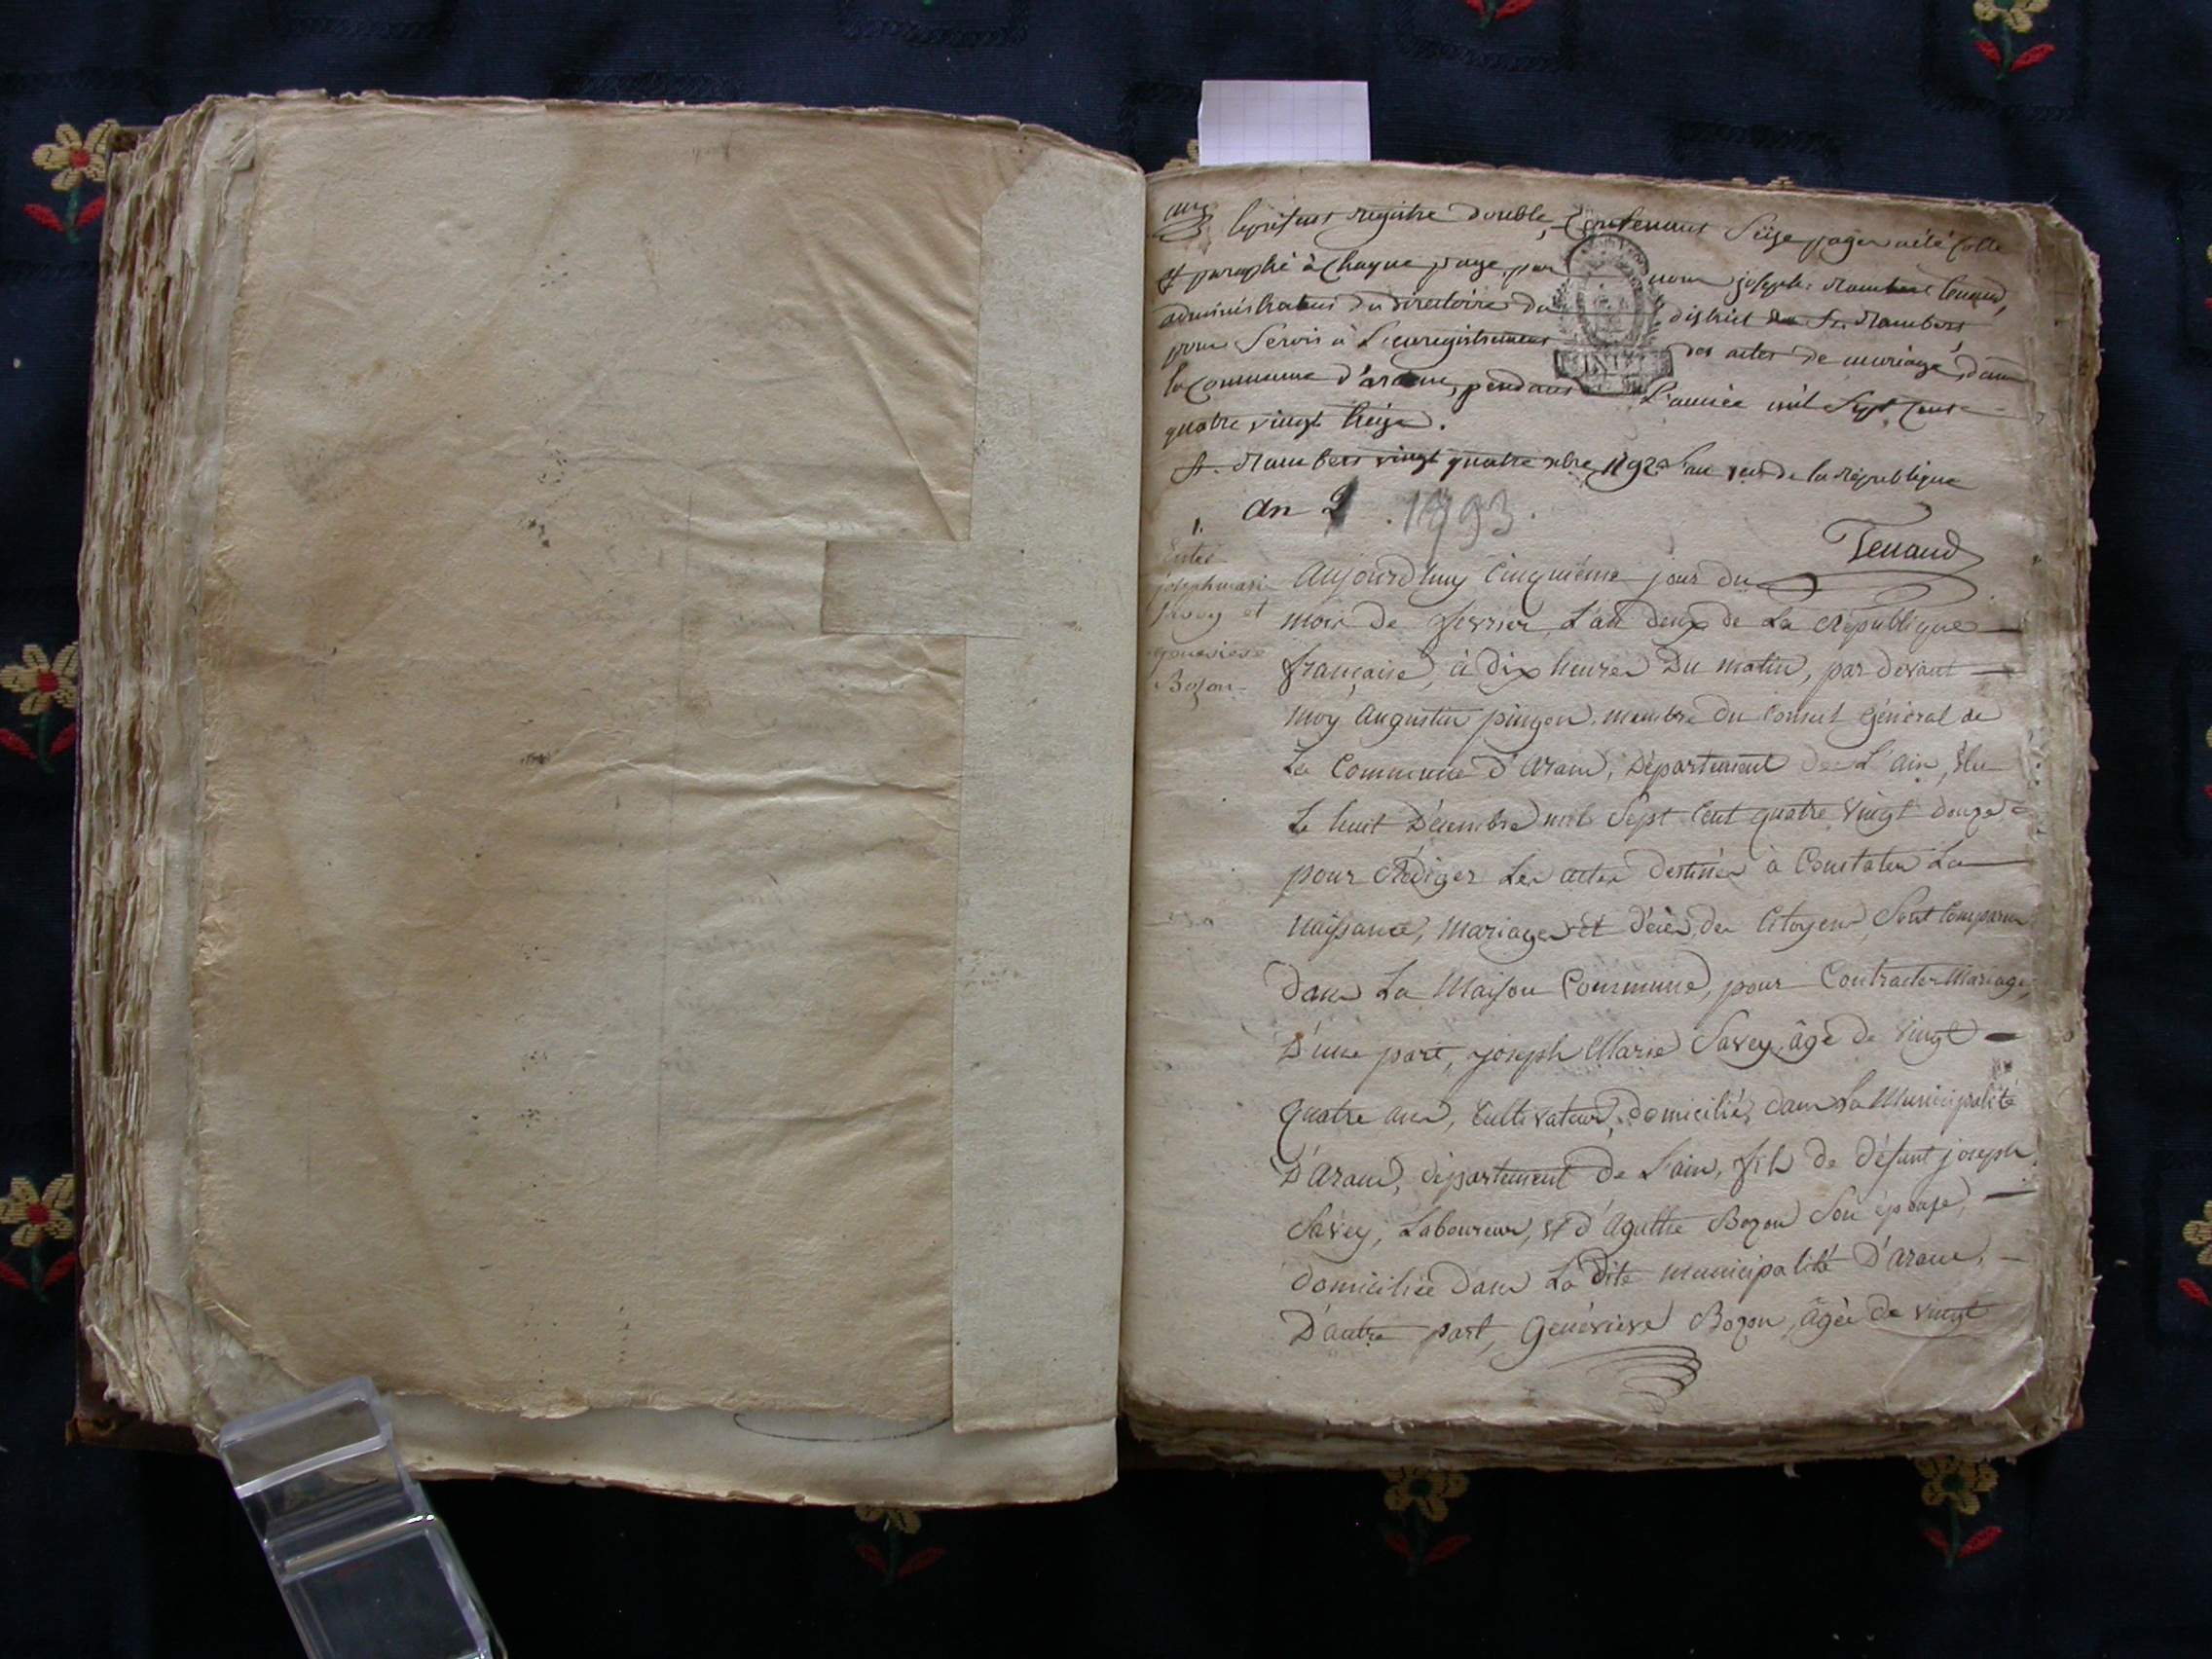 Le présent registre double, Contenant Seize pages a été Cotté
et paraphé à Chaque page, par nous joseph Rambert tenand,
administrateur du directoire du district de St. Rambert,
pour Servir à L'enregistrement des actes de mariage, dans
la Commune d'arane, pendant L'année mil Sept Cent
quatre vingt treize.
St. Rambert vingt quatre xbre 1792 L'an 1er de la république
an 2 . 1793.
Tenand
1.
Entre
joseph marie
Savey et
genevieve
Bozon
Aujourd'huy Cinquième jour du
mois de fevrier L'an deux de La République
française, à dix heures Du matin, par devant
moy Augustin pingon membre du Conseil Général de
La Commune d'Arane, Département de L'ain, Elu
Le huit Décembre mil Sept Cent quatre Vingt douze
pour Rédiger Les actes destinés à Constater La
Naissance, Mariages et Décès, des Citoyens Sont Comparus
Dans La Maison Commune, pour Contracter Mariage,
D'une part, joseph Marie Savey, âgé de Vingt
Quatre ans, Cultivateur, domicilié, dans La Municipalité
D'Arane, département de L'ain, fils de défunt joseph
Savey, Laboureur, et d'Agathe Bozon Son épouse,
domiciliée Dans La dite municipalité D'arane,
D'autre part, Genevieve Bozon, âgée de vingt